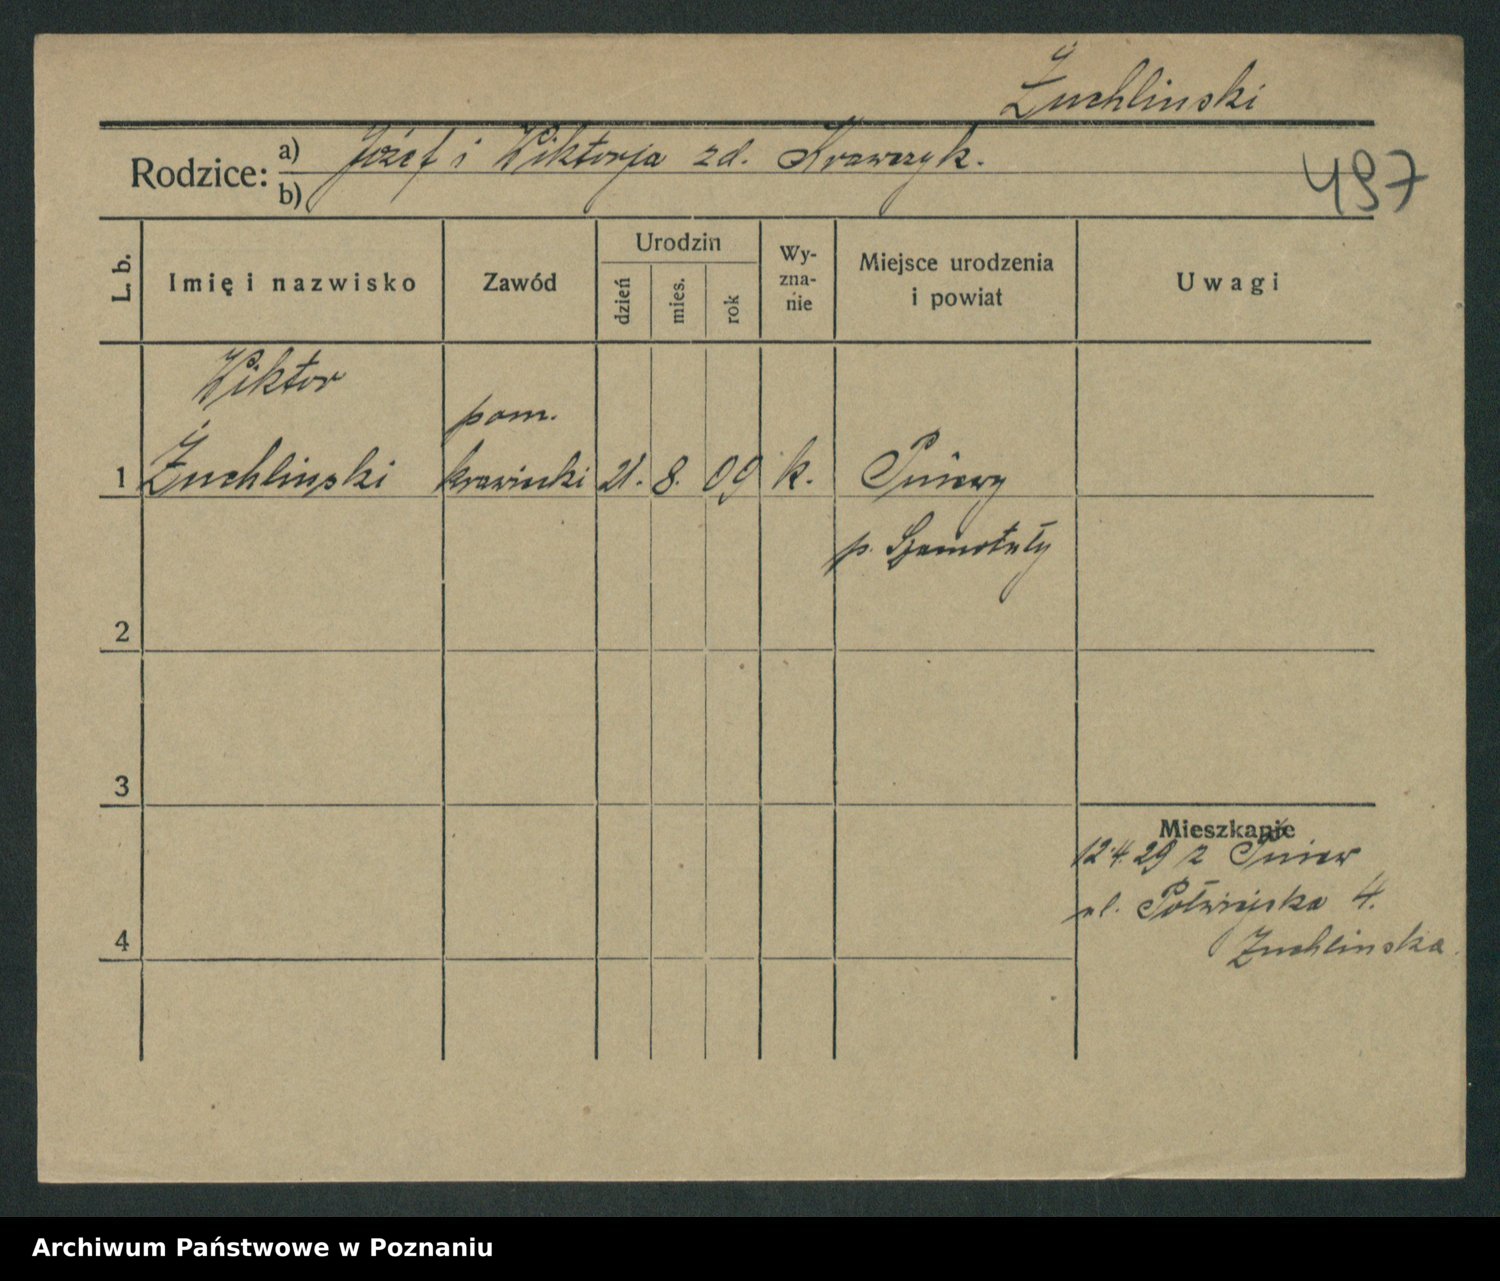 Żuchlinski
Rodzice: a) Józef i Wiktorja zd. Krawczyk.
b)
497
L. b.
Imię i nazwisko
Zawód
Urodzin
dzień
mies.
rok
Wy-
zna-
nie
Miejsce urodzenia
i powiat
Uwagi
Wiktor
pom.
1 Żuchlinski krawiecki 21. 8. 09 k. Pniewy
p. Szamotuły
2
3
Mieszkanie
12.4.29 z Pniew
ul. Półwiejska 4.
Zuchlinska.
4
Archiwum Państwowe w Poznaniu